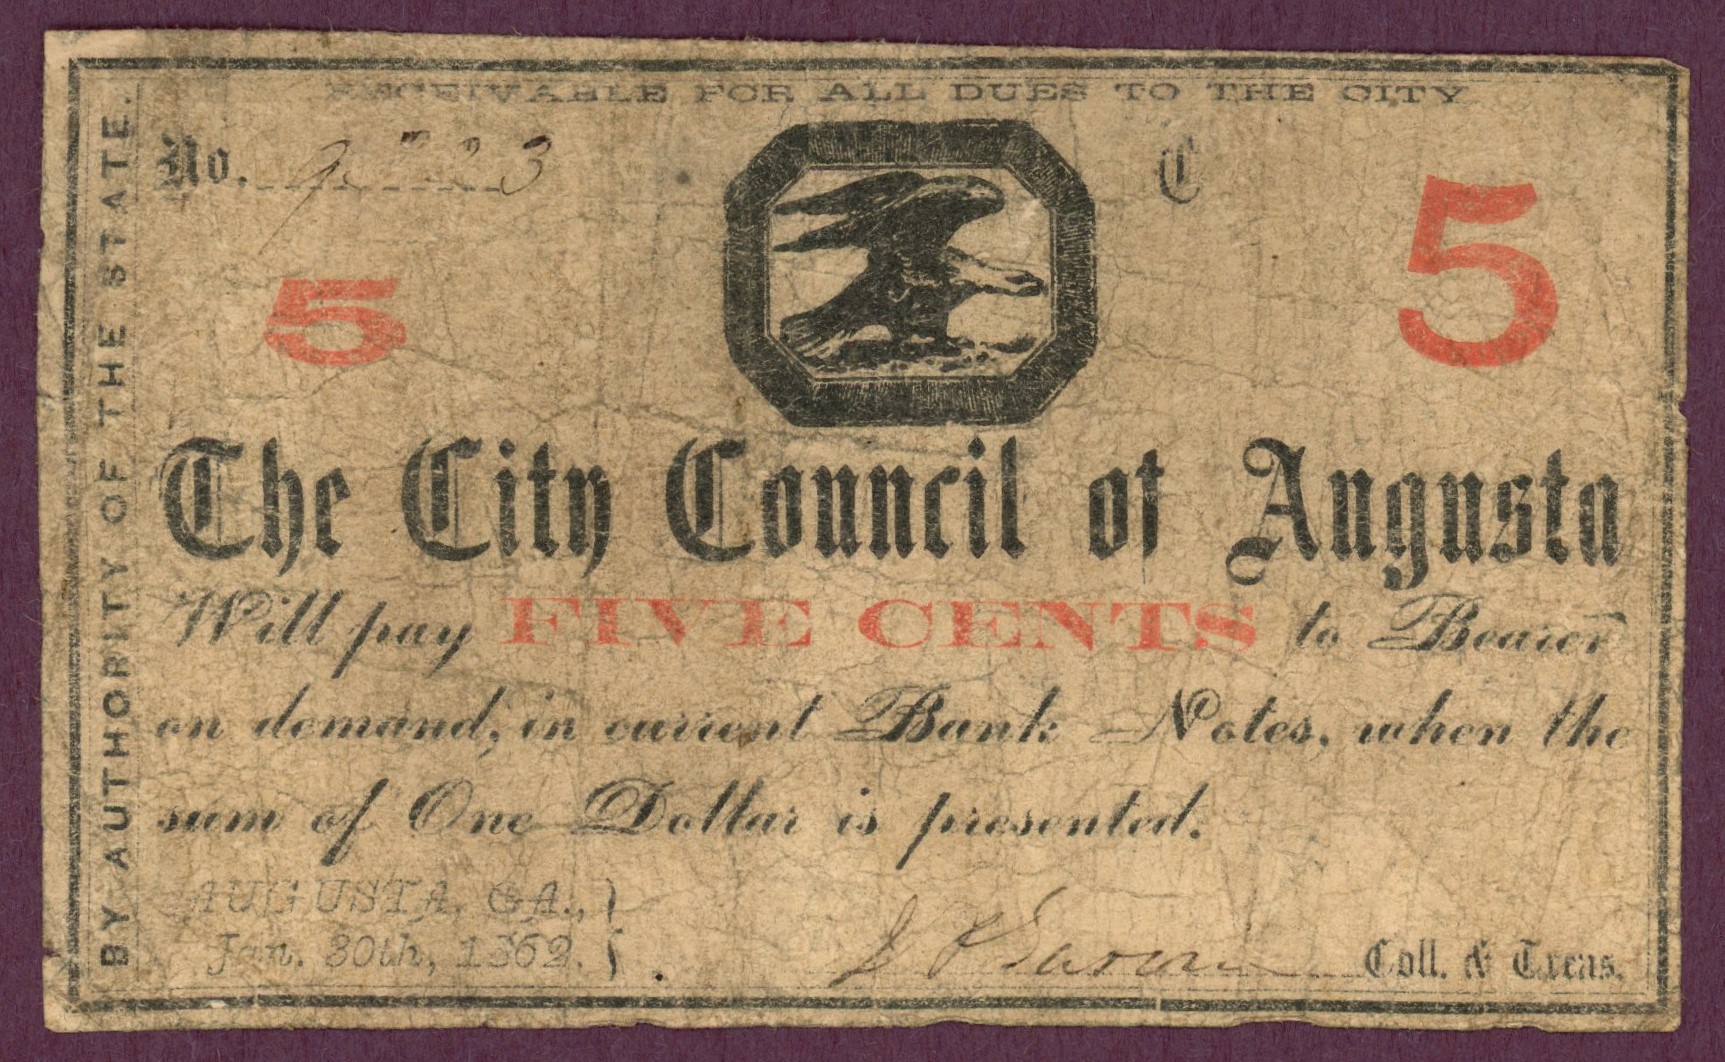 RECEIVABLE FOR ALL DUES TO THE CITY
BY AUTHORITY OF THE STATE.
No. C
5 5
The City Council of Augusta
Will pay FIVE CENTS to Bearer
on demand, in current Bank Notes, when the
sum of One Dollar is presented.
AUGUSTA, GA.,
Jan. 30th, 1862.
Coll. & Treas.